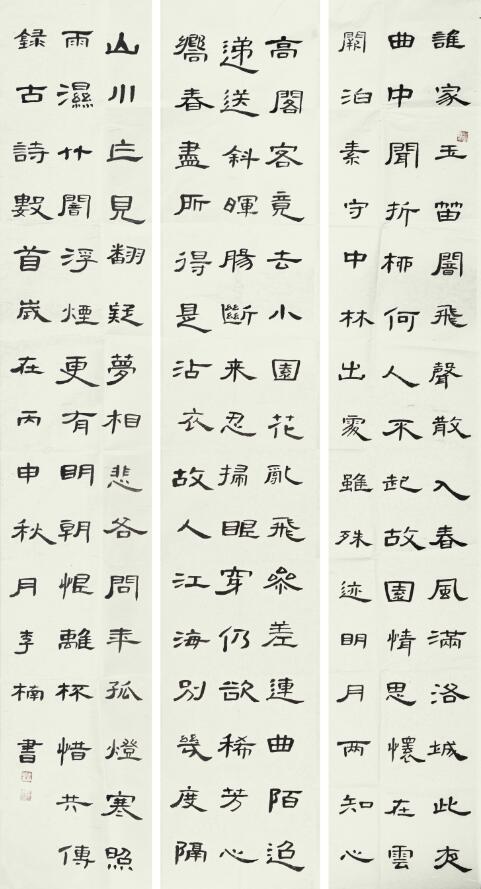 誰家玉笛闇飛聲散入春風滿洛城此夜
曲中聞折柳何人不起故園情思懷在雲
闕泊素守中林出處雖殊迹明月兩知心
高閣客竟去小園花亂飛參差連曲陌迢
遞送斜暉腸斷未忍掃眼穿仍欲稀芳心
嚮春盡所得是沾衣故人江海別幾度隔
山川乍見翻疑夢相悲各問年孤燈寒照
雨濕竹闇浮煙更有明朝恨離杯惜共傳
錄古詩數首歲在丙申秋月李楠書